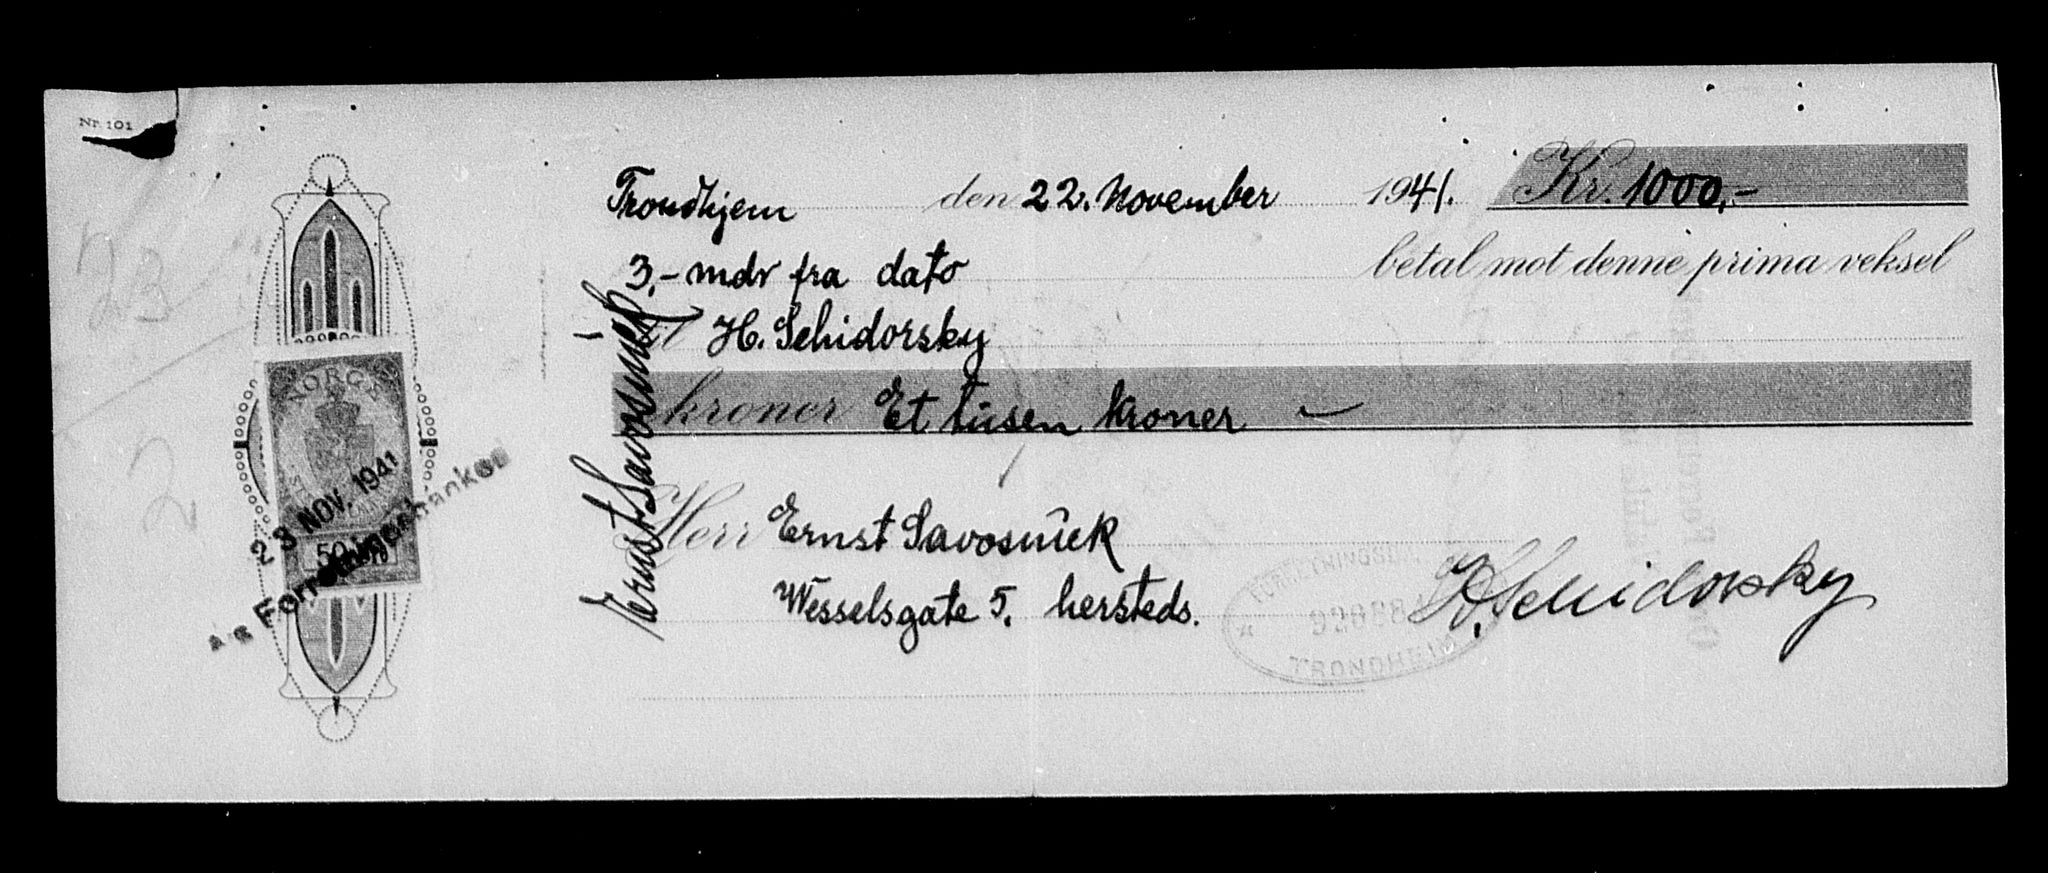 Nr. 101
Trondhjem den 22. November 1941. Kr. 1000,-
3,- mdr fra dato betal mot denne prima veksel
til H. Schidorsky
kroner Et tusen kroner —
Herr Ernst Savosnick
Wesselsgate 5. hersteds.
H. Schidorsky
Ernst Savosnick
NORGE
50
23 NOV. 1941
A/S Forretningsbanken
FORRETNINGSBANKEN
TRONDHEIM
23
2